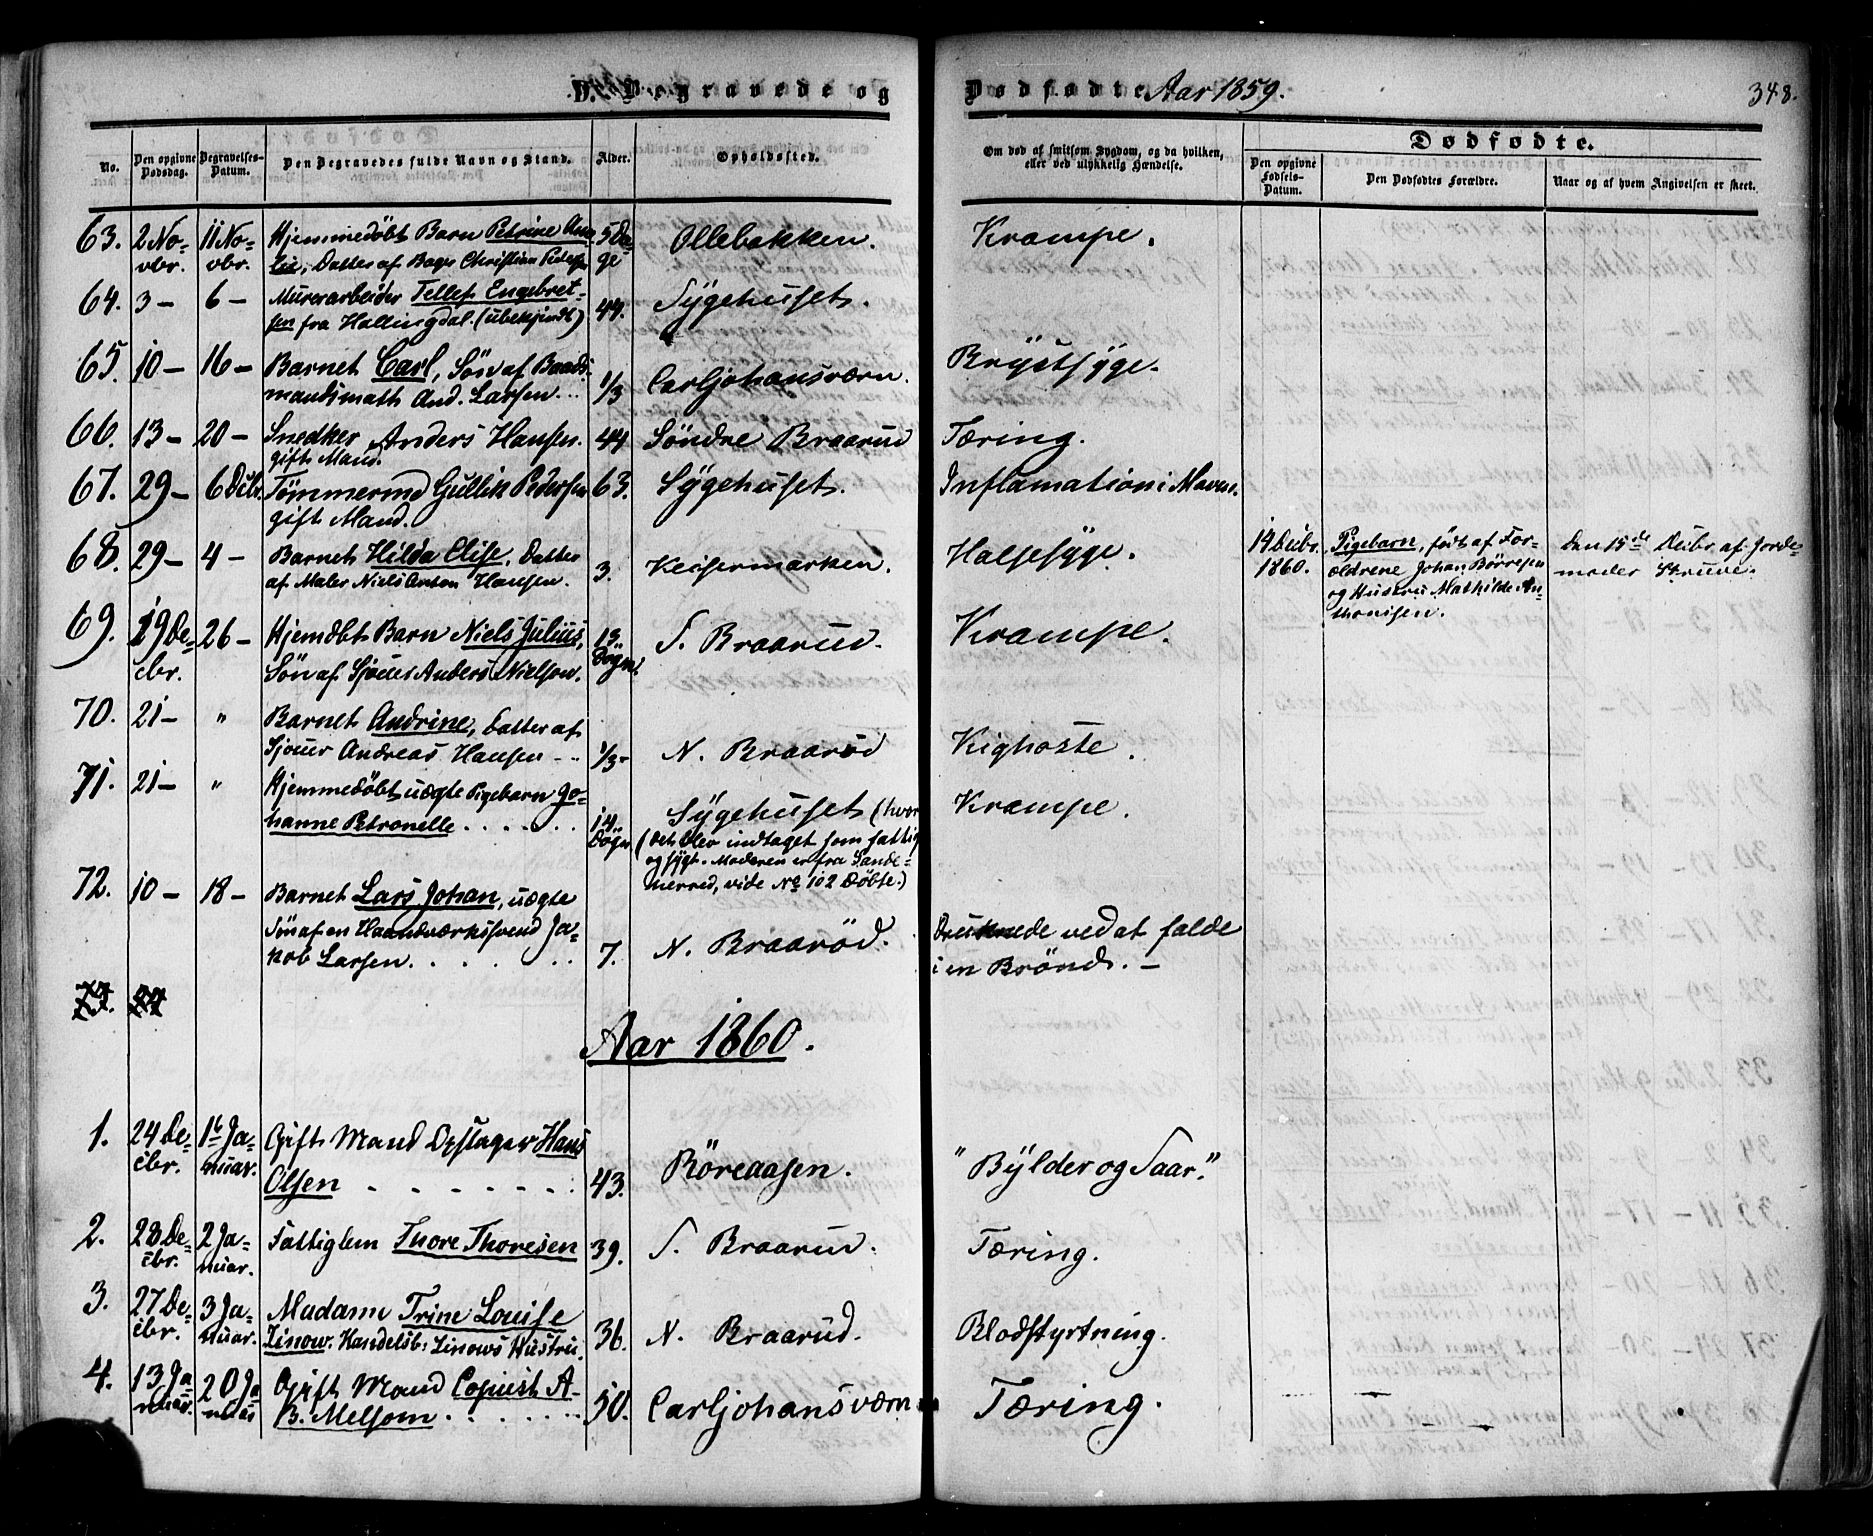 D. Begravede og Dødfødte Aar 1859. 348.
No.
Den opgivne Dødsdag.
Begravelses-Datum.
Den Begravedes fulde Navn og Stand.
Alder.
Opholdssted.
Om død af smitsom Sygdom, og da hvilken, eller ved ulykkelig Hændelse.
Dødfødte.
Den opgivne Fødsels-Datum.
Den Dødfødtes Forældre.
Naar og af hvem Angivelsen er skeet.
63. 2 No- 11 No- Hjemmedøbt Barn Petrine Ama- 5 Da- Ollebakken. Krampe.
vbr. vbr. lie, Datter af Bager Christian Peders ge
64. 3 – 6 – Murerarbeider Tellef Engebret- 44. Sygehuset.
sen fra Hallingdal. (ubekjendt)
65. 10 – 16 – Barnet Carl, Søn af Baads- 1/3 Carljohansværn. Brystsyge.
mandsmath And. Larsen...
66. 13 – 20 – Snedker Anders Hansen. 44 Søndre Braarud Tæring.
gift Mand.
67. 29 – 6 Decbr. Tømmermd Gullik Pedersen 63. Sygehuset. Inflamation i Maven.
gift Mand.
68. 29 – 4 – Barnet Hilda Elise, Datter 3. Keisermarken. Halssyge.
af Maler Niels Anton Hansen.
19 Decbr. Pigebarn, født af For- Den 15de Decbr. af Jorde-
1860. ældrene Johan Børresen moder Struve.
og Hustru Mathilde An-
thonisen.
69. 19 De- 26 – Hjemdbt Barn Niels Julius, 13 S. Braarud. Krampe.
cbr. Søn af Sjouer Anders Nielsen. Døgn.
70. 21 – " Barnet Andrine, Datter af
Sjouer Andreas Hansen - .. 1/3 - N. Braarød Kighoste.
71. 21 – " Hjemmedøbt uægte Pigebarn Jo- 14 Sygehuset (hvor Krampe.
hanne Petronelle . . . . . . Døgn (det blev indtaget som fattig
og sygt. Moderen er fra Sande-
herred, vide No 102 Døbte.)
72. 10 – 18 – Barnet Lars Johan, uægte
Søn af en Haandværkssvend Ja- 7. N. Braarød. Druknede ved at falde
kob Larsen. . . . . . i en Brønd. –
Aar 1860.
1. 24 De- 1ste Ja- Gift Mand Opstager Hans
cbr. nuar. Olsen . . . . . . . 43. Røreaasen. "Bylder og Saar."
2. 28 De- 2 Ja- Fattiglem Thore Thoresen 39. S. Braarud. Tæring.
cbr. nuar.
3. 27 De- 3 Ja- Madam Trine Louise
cbr. nuar. Linow. Handelsb: Linows Hustru. 36. N. Braarud. Blodstyrtning.
4. 13 Ja- 20 Ja- Gift Mand Copiist A- 50. Carljohansværn Tæring.
nuar. nuar B. Melsom . . . . . .